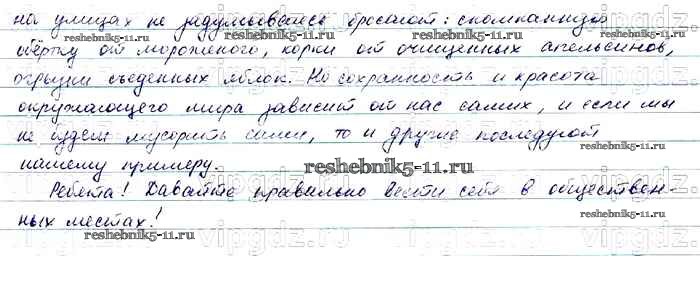 на улицах не задумываясь бросают: скомканную
обёртку от мороженого, корки от очищенных апельсинов,
огрызки съеденных яблок. Но сохранность и красота
окружающего мира зависит от нас самих, и если мы
не будем мусорить сами, то и другие последуют
нашему примеру.
Ребята! Давайте правильно вести себя в обществен-
ных местах!
reshebnik5-11.ru
reshebnik5-11.ru
reshebnik5-11.ru
reshebnik5-11.ru
vipgdz.ru